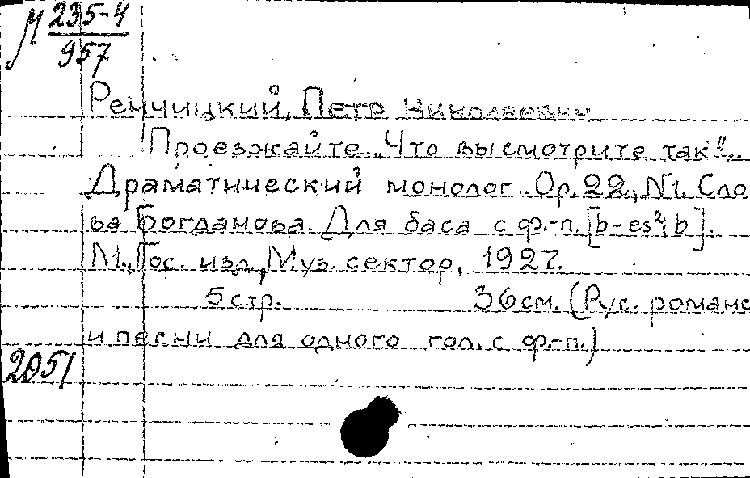 М 235-4
957
Ренчицкий, Петр Николаевич
Проезжайте. „Что вы смотрите так"..
Драматический монолог. Op. 22, N1. Сло
ва Богданова. Для баса с ф.-п. [b-es²; b].
М., Гос. изд., Муз. сектор, 1927.
5 стр. 36 см. (Рус. романс
и песни для одного гол. с ф.-п.)
2051